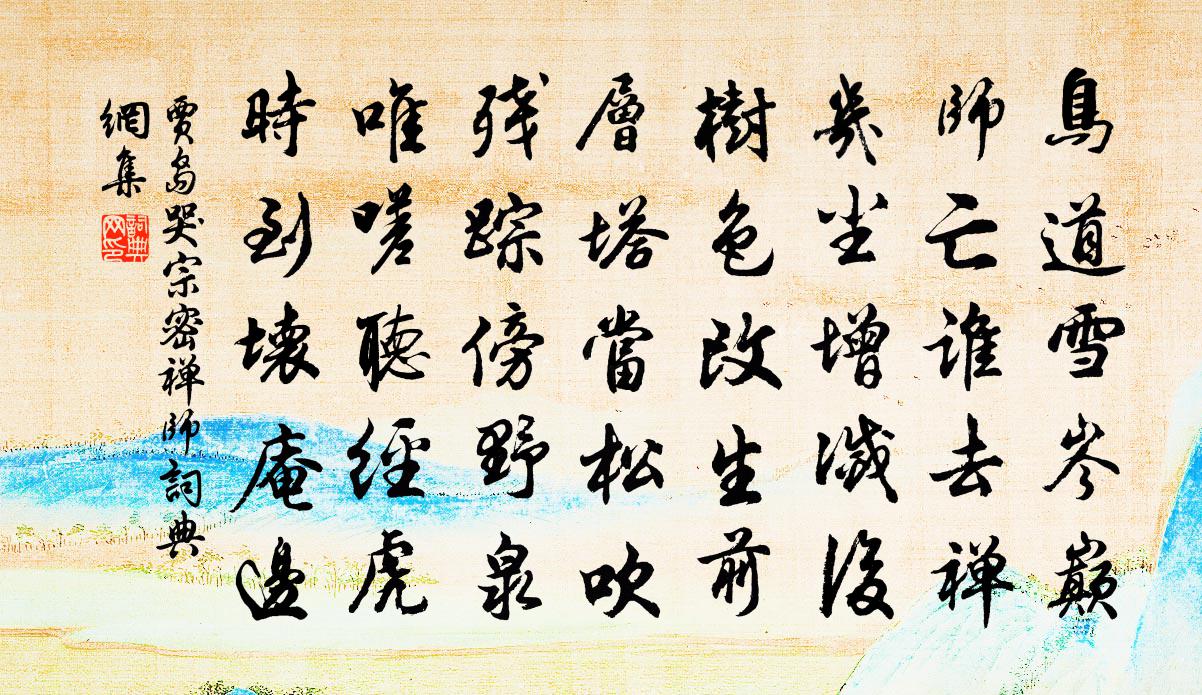 鳥道雪岑巔
師亡誰去禅
幾尘增滅後
樹色改生前
層塔當松吹
残踪傍野泉
唯嗟聽經虎
時到壞庵邊
賈島哭宗密禅師詞典
網集
詞典网印